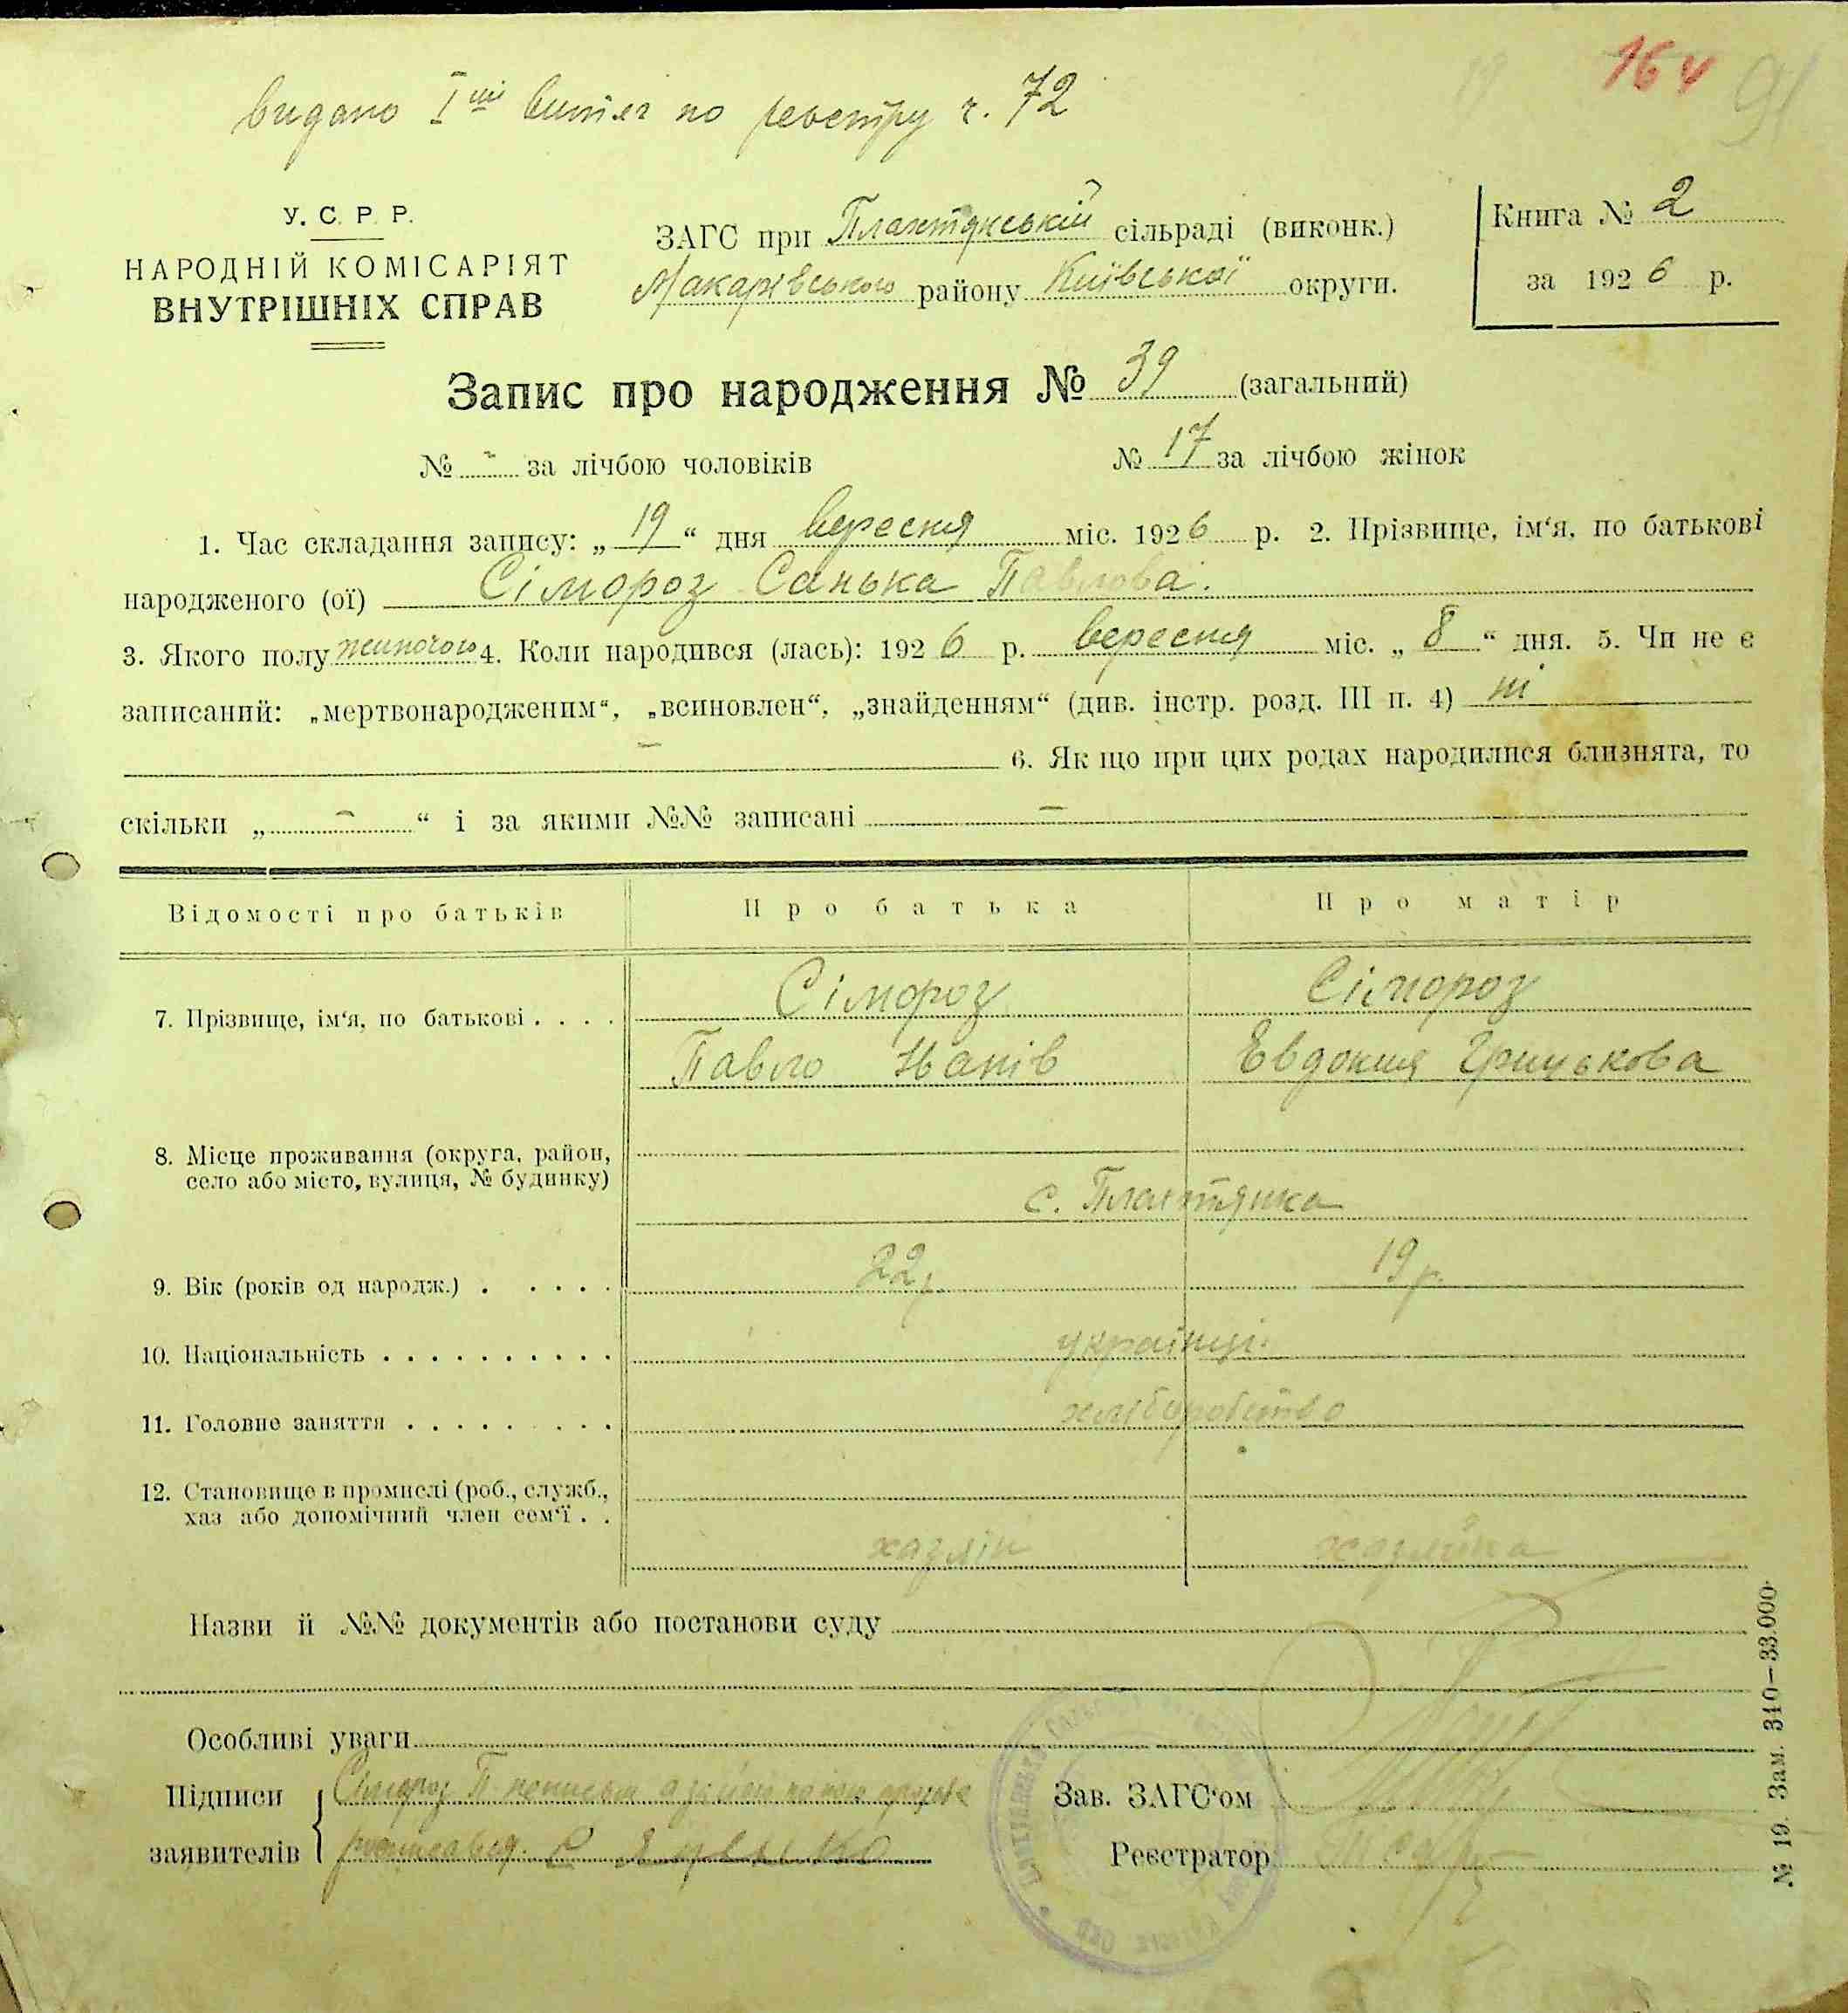 164 91
видано І ший витяг по реєстру ч. 72
У. С. Р. Р.
НАРОДНІЙ КОМІСАРІЯТ
ВНУТРІШНІХ СПРАВ
ЗАГС при сільраді (виконк.)
Макарівського району Київської округи.
Книга № 2
за 1926 р.
Запис про народження № 39 (загальний)
№ - за лічбою чоловіків № 17 за лічбою жінок
1. Час складання запису: „19“ дня вересня міс. 1926 р. 2. Прізвище, ім‘я, по батькові
народженого (ої) Сімороз Санька Павлова.
3. Якого полу жиночого 4. Коли народився (лась): 1926 р. вересня міс. „8“ дня. 5. Чи не є
записаний: „мертвонародженим“, „всиновлен“, „знайденням“ (див. інстр. розд. III п. 4) ні
— 6. Як що при цих родах народилися близнята, то
скільки „ — “ і за якими №№ записані —
Відомості про батьків Про батька Про матір
7. Прізвище, ім‘я, по батькові . . . . Сімороз Сімороз
Павло Іванів Евдокия Грицькова
8. Місце проживання (округа, район,
село або місто, вулиця, № будинку)
с. Плахтянка
9. Вік (років од народж.) . . . . . 22 р. 19 р.
10. Національність . . . . . . . . . . українці.
11. Головне заняття . . . . . . . . . хліборобство
12. Становище в промислі (роб., служб.,
хаз або допомічний член сем‘ї . .
хазяін хазяйка
Назви й №№ документів або постанови суду
Особливі уваги
Підписи Сімороз П
заявителів
Зав. ЗАГС‘ом
Реєстратор
№ 19. Зам. 310—33.000